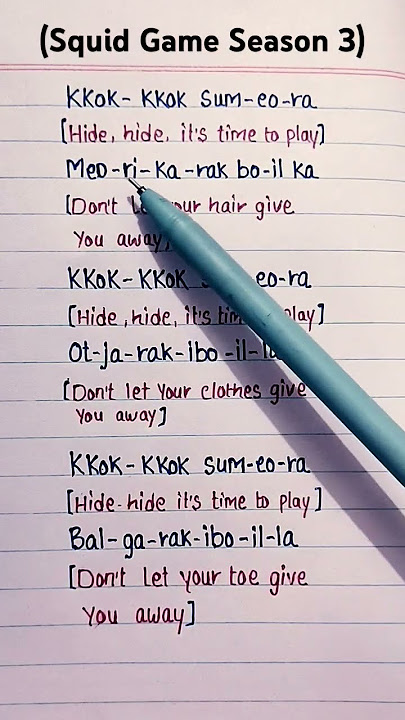 (Squid Game Season 3)
KKOK- KKOK Sum-eo-ra
[Hide, hide, it's time to play]
Meo-ri-Ka-rak bo-il Ka
[Don't your hair give
You away]
KKOK-KKOK eo-ra
[Hide, hide, it's play]
Ot-ja-rak-ibo-il-la
[Don't let Your clothes give
You away]
KKOK-KKOK Sum-eo-ra
[Hide-hide it's time to play]
Bal-ga-rak-ibo-il-la
[Don't Let your toe give
You away]